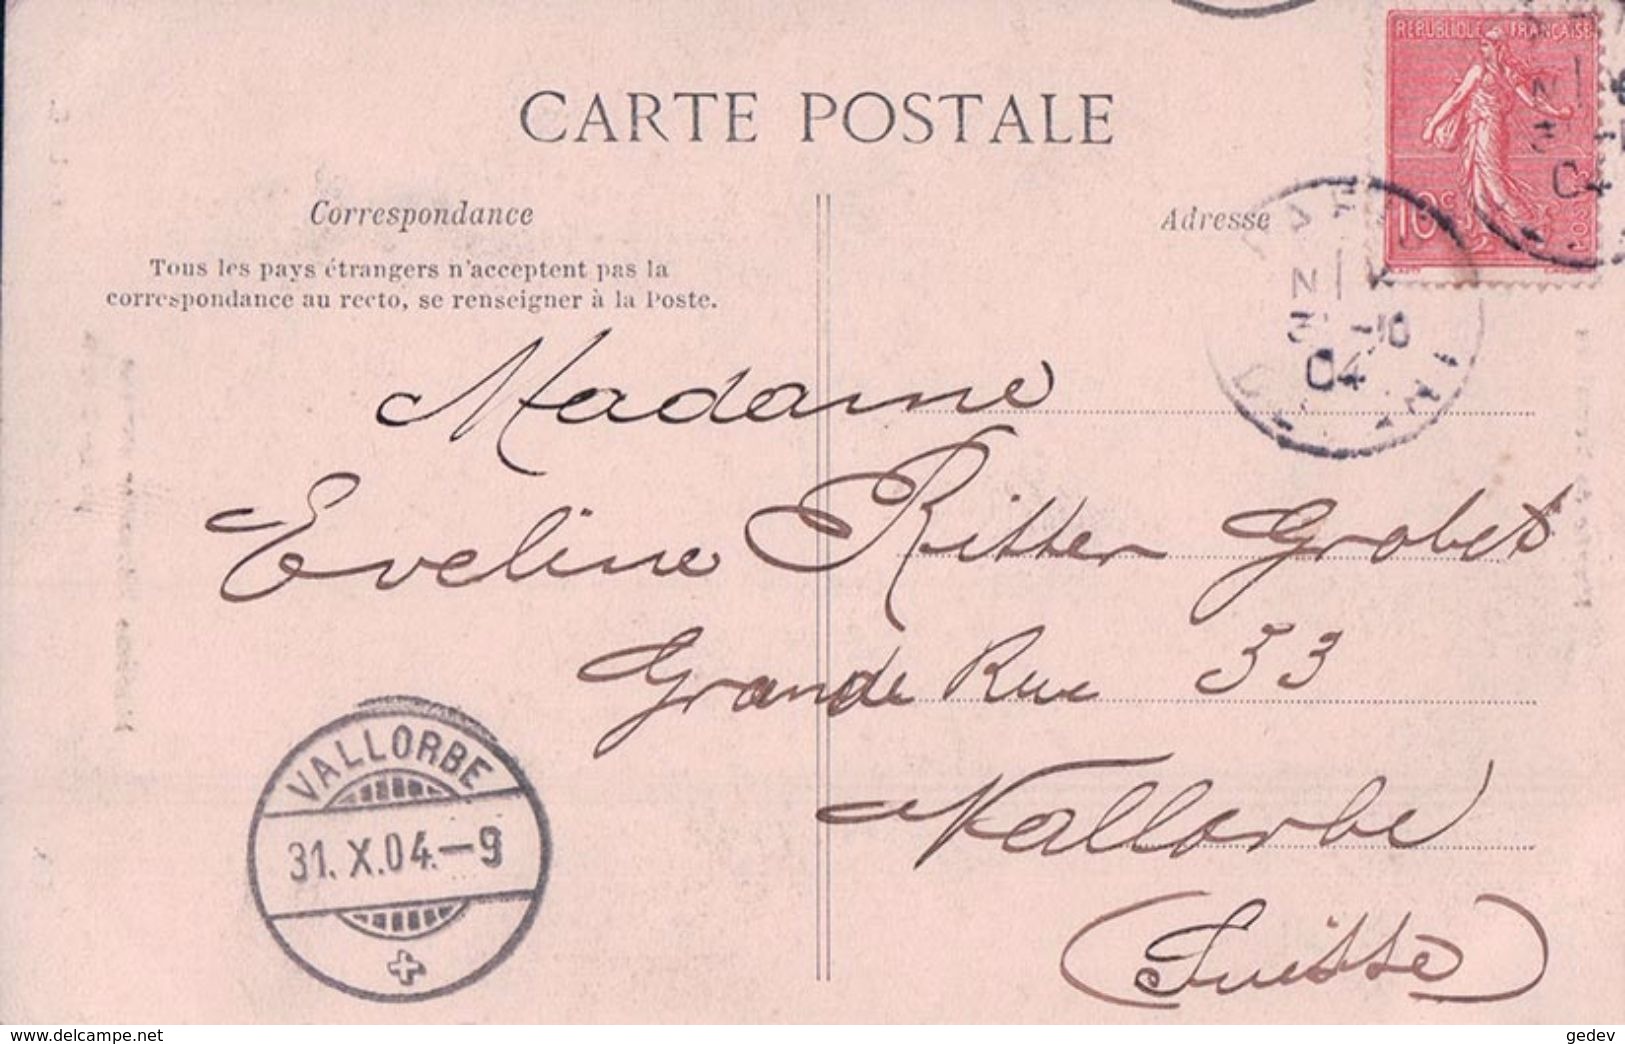 CARTE POSTALE
REPUBLIQUE FRANÇAISE
10c
Correspondance
Adresse
Tous les pays étrangers n'acceptent pas la
correspondance au recto, se renseigner à la Poste.
04
04
Madame
Eveline Ritter Grobet
Grande Rue 53
Vallorbe
(Suisse)
VALLORBE
31.X.04.-9
www.delcampe.net
gedev